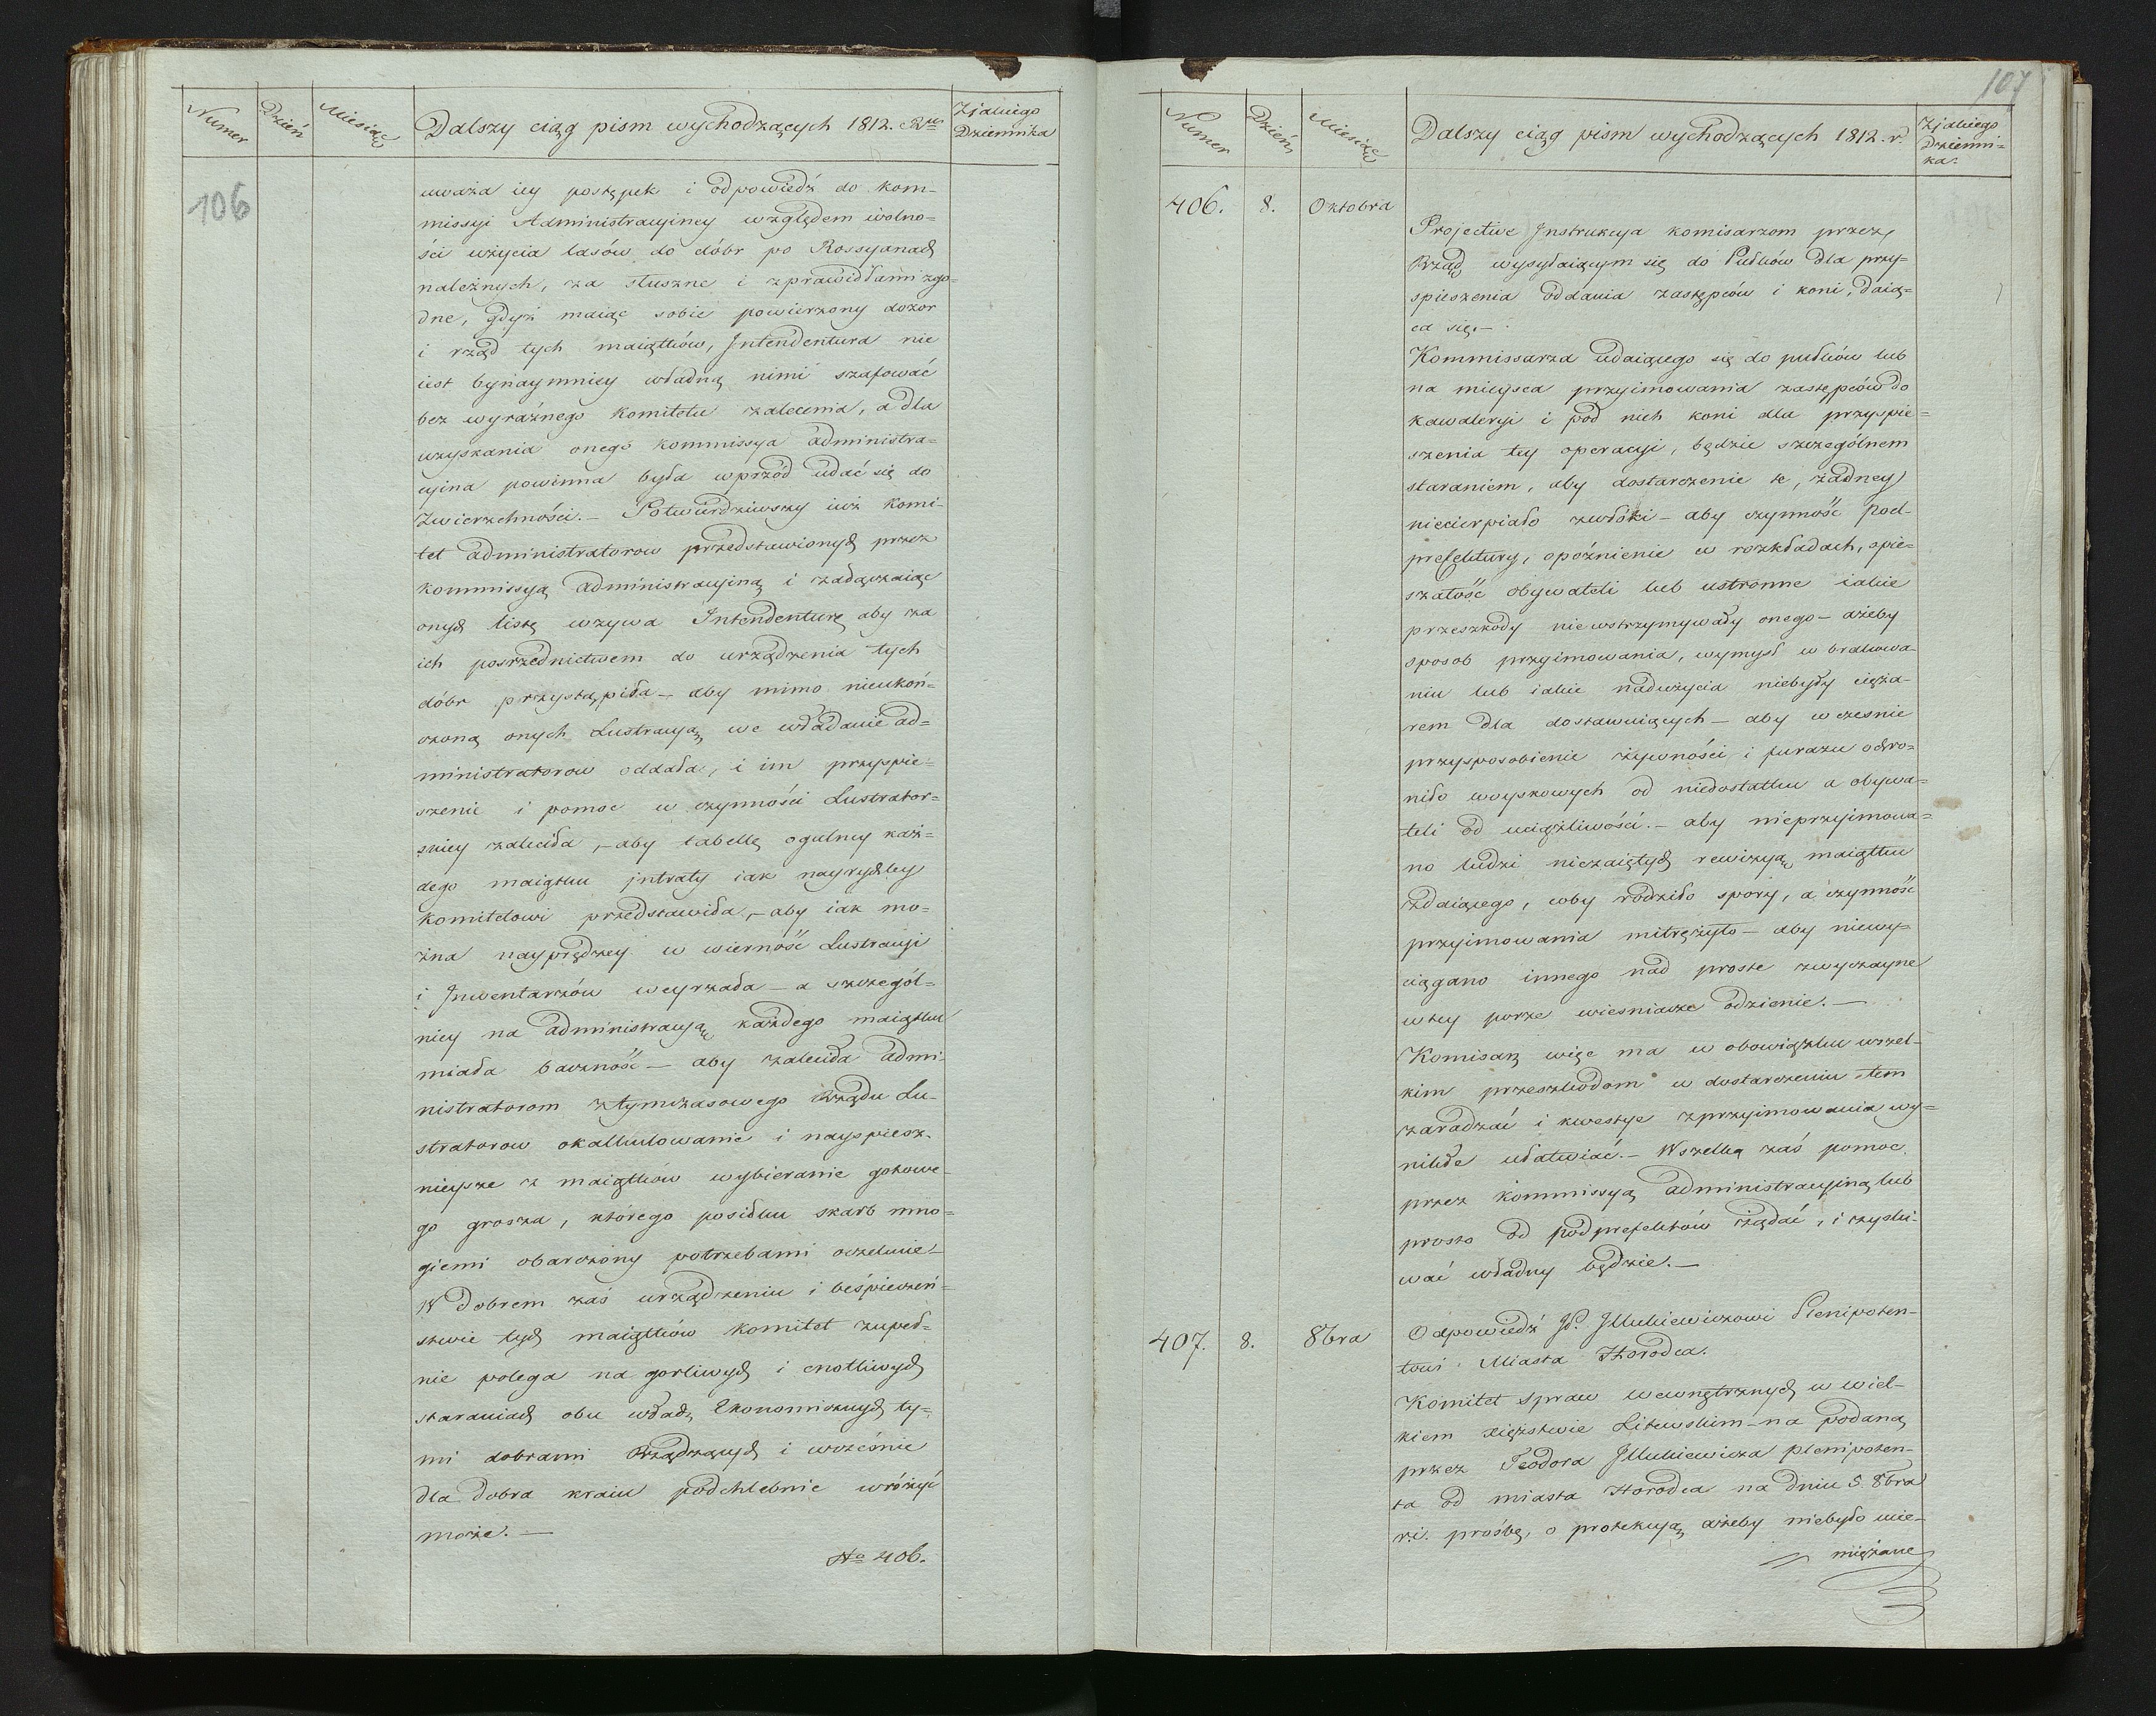 Numer
Dzień
Miesiąc
Dalszy ciąg pism wychodzących 1812. Ru
Zjakiego
Dziennika
106
uważa iey postępek i odpowiedź do kom-
missyi Administracyiney względem wolno=
ści użycia lasów do dóbr po Rossyanach
należnych, za słuszne i zprawidłami zgo=
dne, gdyż maiąc sobie powierzony dozor
i rząd tych maiątków, Jntendentura nie
iest bynaymniey władną nimi szafować
bez wyraźnego Komitetu zalecenia, a dla
uzyskania onego kommissya administra=
cyina powinna była wprzód udać się do
Zwierzchności. – Potwierdziwszy iuż Komi-
tet administratorow przedstawionych przez
kommissyą administracyiną i załączaiąc
onych listę wzywa Intendenturę aby za
ich posrzednictwem do urządzenia tych
dóbr przystąpiła – aby mimo nieukoń=
czoną onych Lustracyą, we władanie ad=
ministratorow oddała, i im przyspie=
szenie i pomoc w czynności Lustrator=
skiey zaleciła, – aby tabellę ogulney każ=
dego maiątku jntraty iak nayrychley
Komitetowi przedstawiła, – aby iak mo=
żna nayprędzey w wierność Lustracyi
i Jnwentarzów weyrzała – a szczegól=
niey na administracyą każdego maiątku
miała baczność – aby zaleciła admi-
nistratorom ztymczasowego Rządu Lu-
stratorow okalkulowanie i nayspiesz-
nieysze z maiątków wybieranie gotowe-
go grosza, którego posiłku skarb mno=
giemi obarczony potrzebami oczekuie. –
W dobrem zaś urządzeniu i beśpieczeń=
stwie tych maiątków Komitet zupeł=
nie polega na gorliwych i cnotliwych
staraniach obu władz Ekonomicznych ty=
mi dobrami Rządzących i wcześnie
dla dobra kraiu podchlebnie wróżyć
może. –
No 406.
107
Numer
Dzień
Miesiąc
Dalszy ciąg pism wychodzących 1812. r.
Zjakiego
Dzienni-
ka?
406. 8. Oktobra
Projective Jnstrukcya komisarzom przez
Rząd wysyłaiącym się do Pułków dla przy=
spieszenia oddania zastępców i koni, daią=
ca się. –
Kommissarza udaiącego się do pułków lub
na mieysca przyimowania zastępców do
kawaleryi i pod nich koni dla przyspie=
szenia tey operacyi, będzie szczególnem
staraniem, aby dostarczenie te, żadney
niecierpiało zwłóki – aby czynność pod-
prefektury, opóźnienie w rozkładach, opie=
szałość obywateli lub ustronne iakie
przeszkody niewstrzymywały onego – ażeby
sposob przyimowania, wymysł w brakowa-
niu lub iakie nadużycia niebyły cięża-
rem dla dostawuiących – aby wczesnie
przysposobienie żywności i furażu ochro=
niło woyskowych od niedostatku a obywa=
teli od uciążliwości. – aby nieprzyimowa=
no ludzi niezaiętych rewizyą maiątku
zdaiącego, coby rodziło spory, a czynność
przyimowania mitrężyło – aby niewy=
ciągano innego nad proste zwyczayne
wtey porze wiesniacze odzienie. –
Komisarz więc ma w obowiązku wszel-
kim przeszkodom w dostarczeniu tem
zaradzać i kwestye zprzyimowania wy=
nikłe ułatwiać. – Wszelką zaś pomoc
przez kommissyą administracyiną lub
prosto od podprefektów żądać, i zyski-
wać władny będzie. –
407. 8. 8bra
Odpowiedź JP. Jllukiewiczowi Plenipoten-
towi Miasta Horodca.
Komitet spraw wewnętrznych w wiel-
kiem xięztwie Litewskim – na podaną
przez Teodora Jllukiewicza plenipoten-
ta od miasta Horodca na dniu 5. 8bra
r. i. prośbę, o protekcyą ażeby niebyło wie-
mięzane